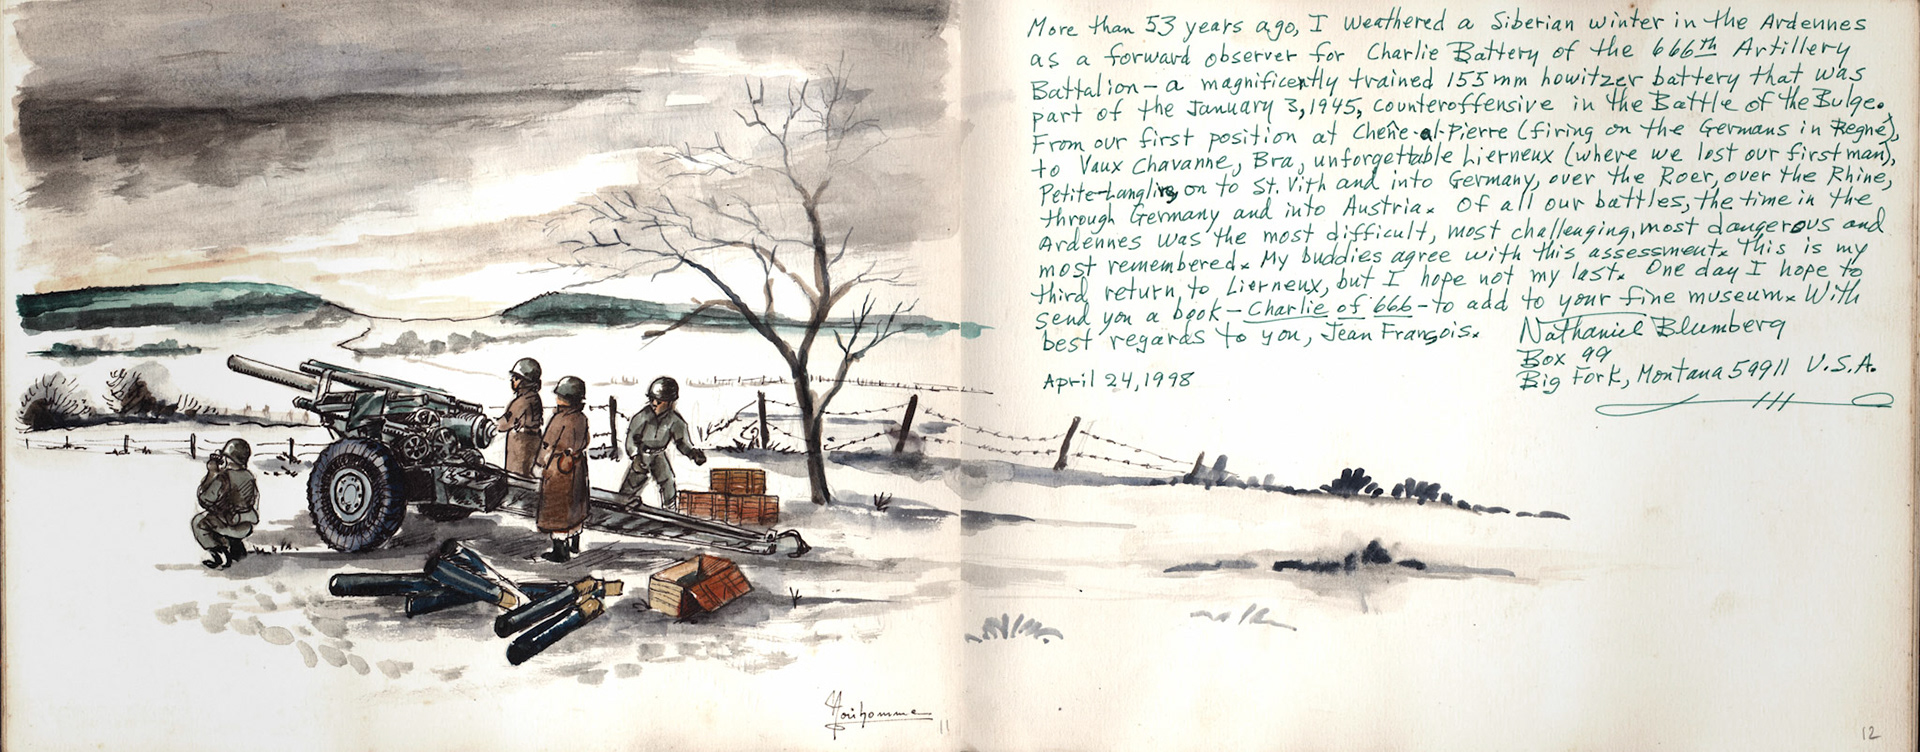 More than 53 years ago, I weathered a Siberian winter in the Ardennes
as a forward observer for Charlie Battery of the 666th Artillery
Battalion – a magnificently trained 155mm howitzer battery that was
part of the January 3, 1945, counteroffensive in the Battle of the Bulge.
From our first position at Chêne-al-Pierre (firing on the Germans in Regné),
to Vaux Chavanne, Bra, unforgettable Lierneux (where we lost our first man),
Petite-Langlire, on to St. Vith and into Germany, over the Roer, over the Rhine,
through Germany and into Austria. Of all our battles, the time in the
Ardennes was the most difficult, most challenging, most dangerous and
most remembered. My buddies agree with this assessment. This is my
third return to Lierneux, but I hope not my last. One day I hope to
send you a book – Charlie of 666 – to add to your fine museum. With
best regards to you, Jean François.
Nathaniel Blumberg
Box 99
Big Fork, Montana 59911 U.S.A.
April 24, 1998
11
12